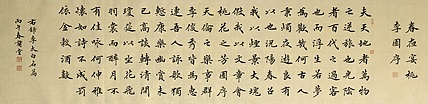 春夜宴桃
李園序
夫天地者萬物
之逆旅也光陰
者百代之過客
也而浮生若夢
為歡幾何古人
秉燭夜遊良有
以也況陽春召
我以煙景大塊
假我以文章會
桃花之芳園序
天倫之樂事群
季俊秀皆為惠
連吾人詠歌獨
慙康樂幽賞未
已高談轉清開
瓊筵以坐花飛
羽觴而醉月不
有佳詠何伸雅
懷如詩不成罰
依金谷酒數
右錄李太白名篇
丙午春